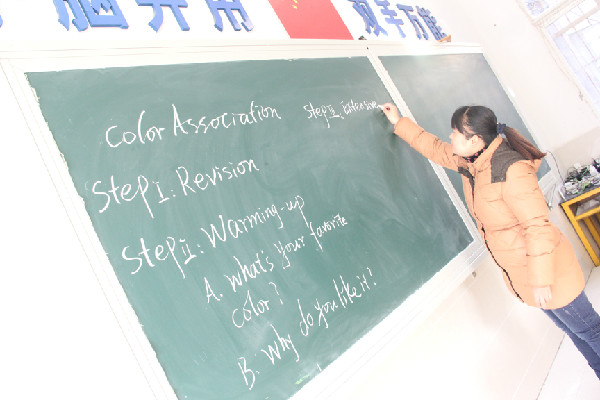 脑并用 双手万能
Color Association
Step
Step I: Revision
Step II: Warming-up
A. What's your favorite
color?
B: Why do you like it?